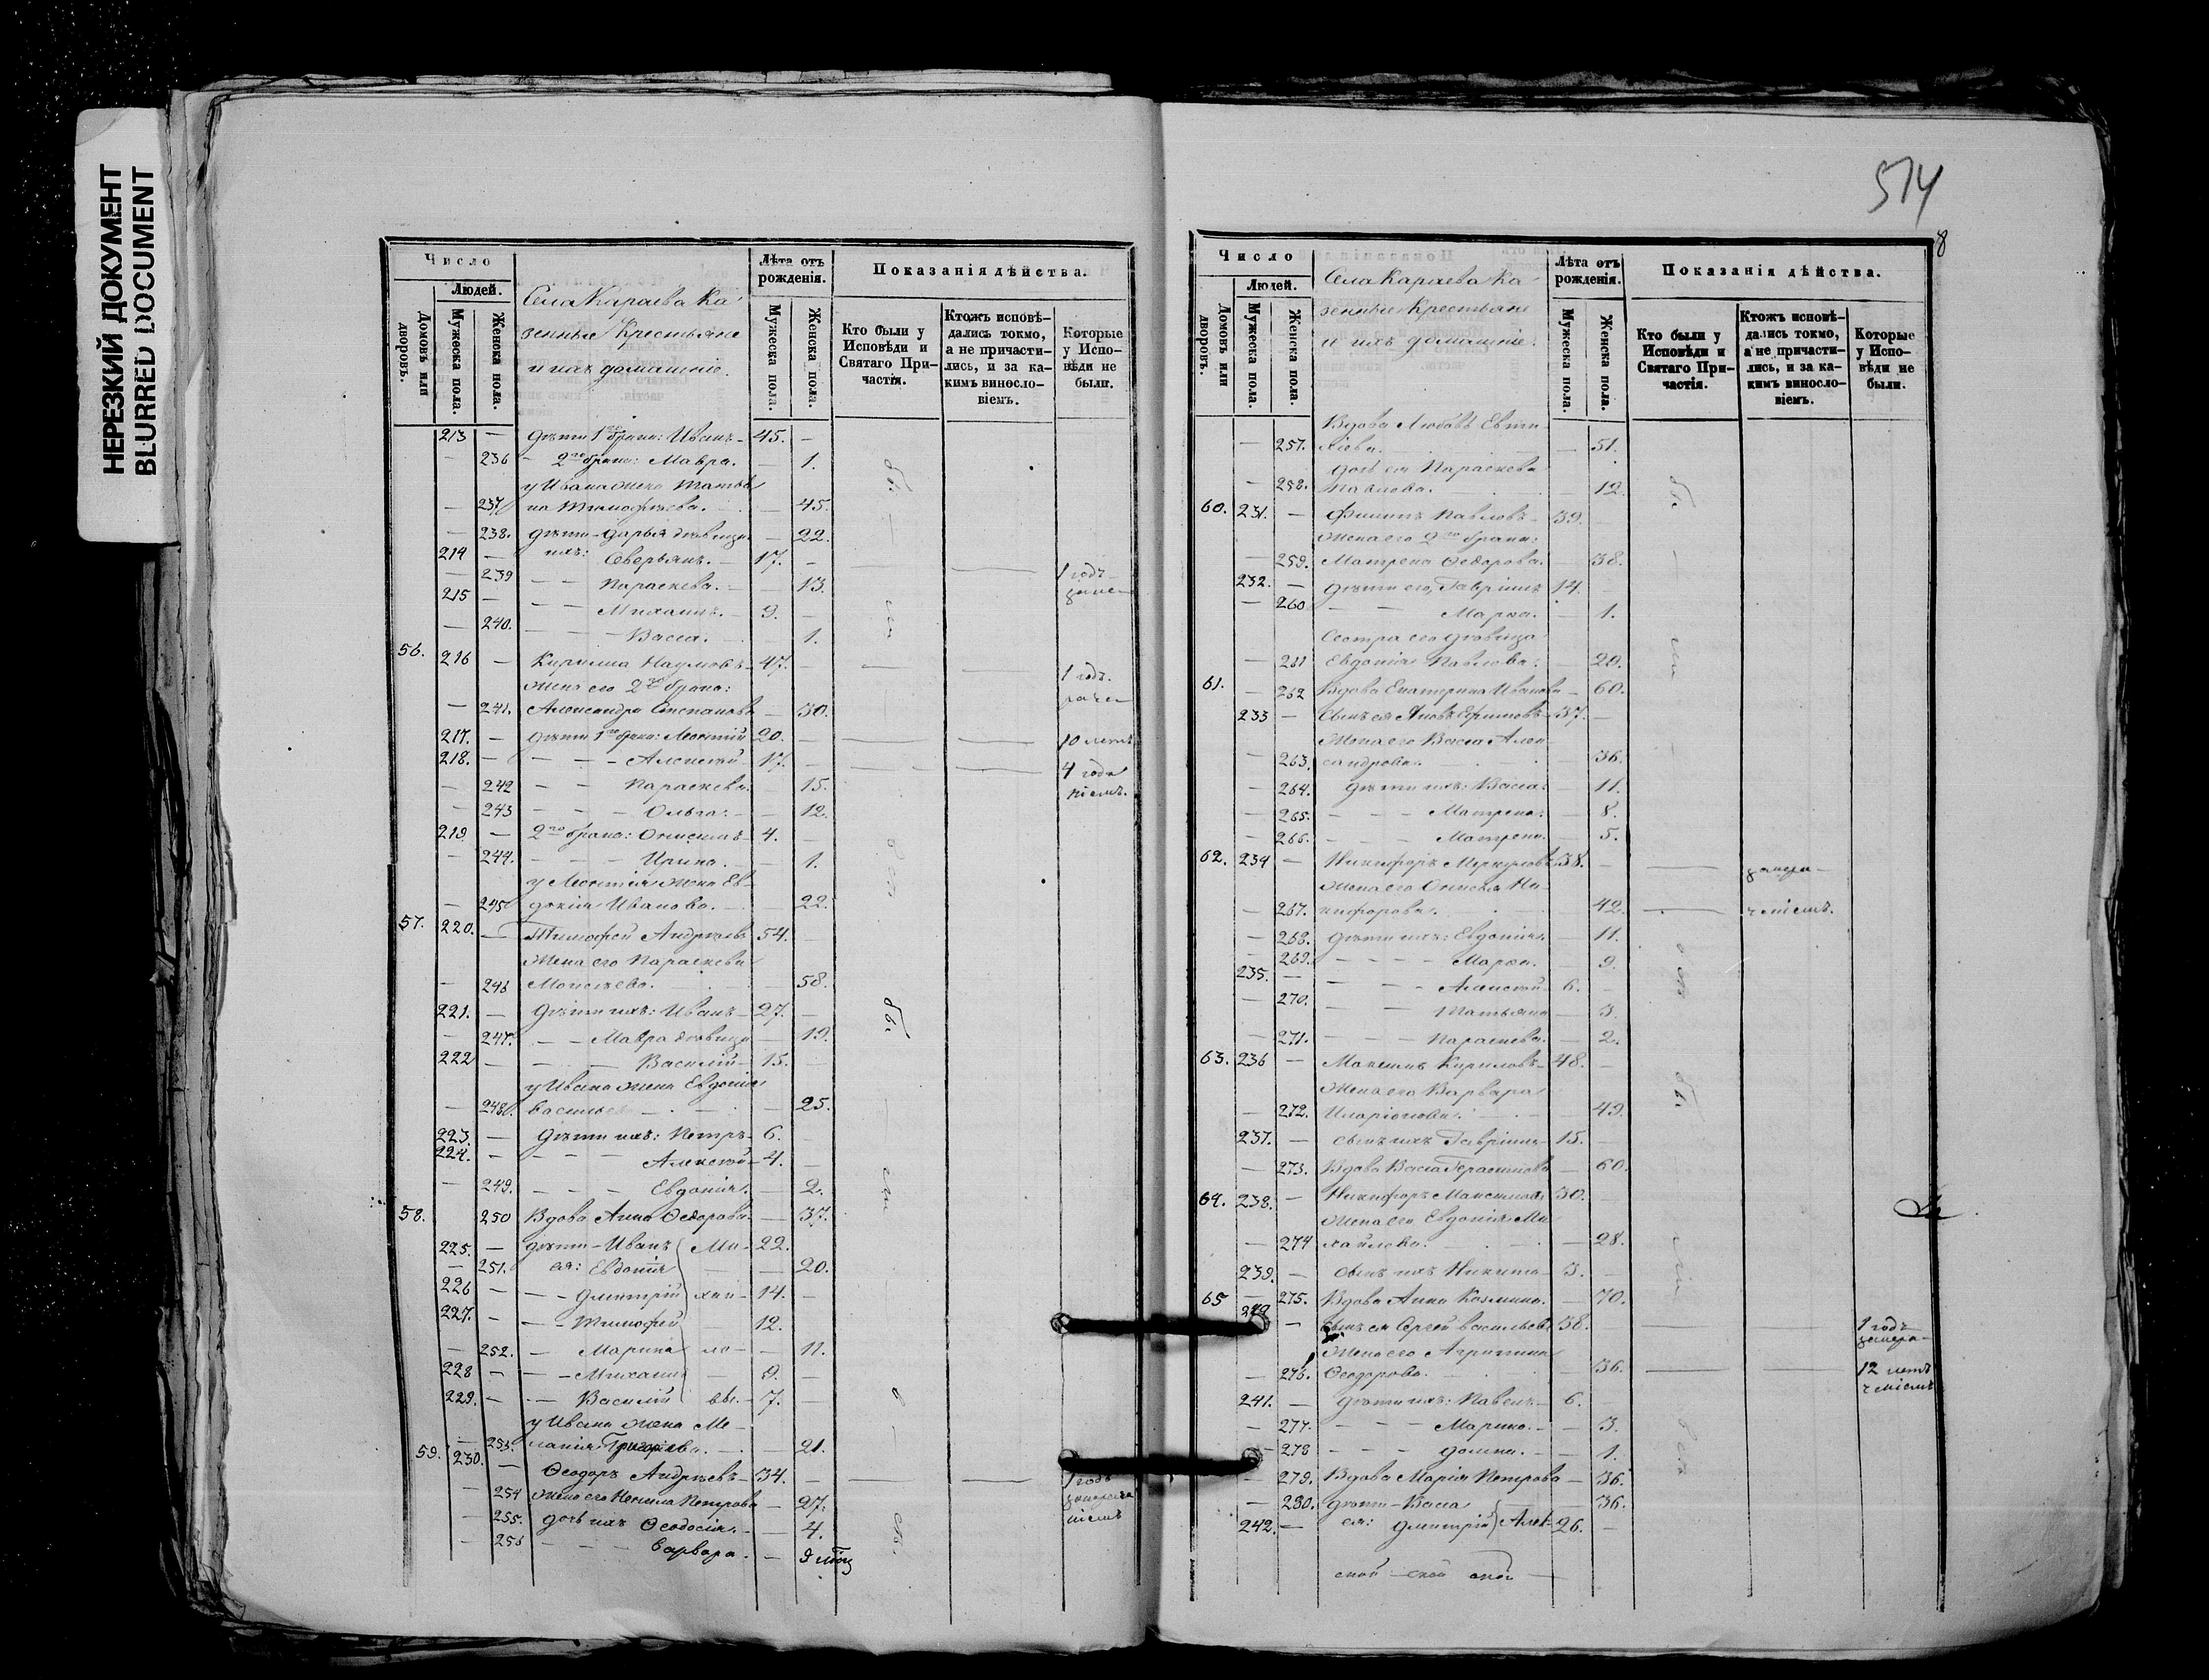 НЕРЕЗКИЙ ДОКУМЕНТ
BLURRED DOCUMENT
Число
Людей.
Домовъ или дворовъ.
Мужеска пола.
Женска пола.
Села Караева Ка-
зенные Крестьяне
и ихъ домашніе.
Лѣта отъ рожденія.
Мужеска пола.
Женска пола.
Показанія дѣйства.
Кто были у Исповѣди и Святаго При-частія.
Ктожъ исповѣ-дались токмо, а не причасти-лись, и за ка-кимъ винносло-віемъ.
Которые у Испо-вѣди не были.
213 — дѣти 1го брака: Иванъ — 45. —
— 236 — 2го брака: Мавра. — 1.
у Ивана жена Татья
— 237 на Тимофѣева. — 45.
— 238. дѣти — Дарья дѣвица — 22.
214 — ихъ: Северьянъ. — 17. —
— 239 — — Параскева. — 13. 1 годъ
215 — — — Михаилъ. — 9. —
— 240. — — Васса. — 1.
56. 216 — Кирилла Наумовъ — 47. — 1 годъ
жена его 2го брака:
— 241. Александра Степанова — 30.
217. — дѣти 1го брака: Леонтій 20. — 10 летъ
218. — — — Алексей — 17. — 4 года
— 242 — — Параскева. — 15.
— 243 — — Ольга: — 12.
219 — 2го брака: Онисимъ — 4. —
— 244. — — Ирина. — 1.
у Леонтія жена Ев-
— 245 докія Иванова. — 22.
57. 220. — Тимофей Андреевъ 54. —
Жена его Параскева
— 246 Моисеева. — 58.
221. — Дѣти ихъ: Иванъ — 27. —
— 247. — — Мавра дѣвица — 19.
222 — — — Василій — 15. —
у Ивана жена Евдокія
— 248. Васильева — 25.
223. — Дѣти ихъ: Петръ — 6. —
224. — — — Алексей — 4. —
— 249. — — Евдокія. — 2.
58. 250 Вдова Анна Ѳедорова. — 37.
225. — дѣти — Иванъ Ми- 22.
— 251. ея: Евдокія — 20.
226 — — Дмитрій хай- 14. —
227. — — Тимофей — 12.
— 252. — Марина ло- — 11.
228 — — Михаилъ — 9. —
229. — — Василій вы. — 7. —
у Ивана жена Ме-
— 253. ланія Григорьева. — 21.
59. 230. — Ѳеодоръ Андреевъ — 34. — 1 годъ
— 254 жена его Ненила Петрова — 27.
— 255. дочь ихъ Ѳеодосія. — 4.
— 256 — — Варвара. — 9 мѣсц
574
8
Число
Людей.
Домовъ или дворовъ.
Мужеска пола.
Женска пола.
Села Караева Ка-
зенные Крестьяне
и ихъ домашніе.
Лѣта отъ рожденія.
Мужеска пола.
Женска пола.
Показанія дѣйства.
Кто были у Исповѣди и Святаго При-частія.
Ктожъ исповѣ-дались токмо, а не причасти-лись, и за ка-кимъ винносло-віемъ.
Которые у Испо-вѣди не были.
Вдова Любовь Евти-
— 257. хіева. — 51.
дочь ея Параскева
— 258. Павлова. — 12.
60. 231. — Филипъ Павловъ — 39. —
Жена его 2го брака:
— 259. Матрена Ѳедорова. — 38.
232. — Дѣти его, Гавріилъ 14. —
— 260 — — Марѳа. — 1.
Сестра его дѣвица
— 261 Евдокія Павлова. — 20.
61. — 262 Вдова Екатерина Иванова — 60.
233 — Сынъ ея Яковъ Ефимовъ — 37. —
Жена его Васса Алек-
— 263. сандрова. — 36.
— 264. дѣти ихъ: Васса: — 11.
— 265. — — Матрена: — 8.
— 266. — — Матрена. — 5.
62. 234 — Никифоръ Меркуловъ 38. —
Жена его Онисья Ни-
— 267. кифорова. — 42.
— 268. Дѣти ихъ: Евдокія. — 11.
— 269. — — Марѳа. — 9.
235. — — — Алексей — 6. —
— 270. — — Татьяна — 3.
— 271. — — Параскева. — 2.
63. 236 — Максимъ Кириловъ — 48. —
Жена его Варвара
— 272. Иларіонова. — 49.
237. — сынъ ихъ Гавріилъ — 15. —
— 273. Вдова Васса Герасимова — 60.
64. 238. — Никифоръ Максимовъ 30. —
Жена его Евдокія Ми
— 274 хайлова. — 28.
239. — сынъ ихъ Никита — 3. —
65 — 275. Вдова Анна Козмина. — 70.
240 — сынъ ея Сергей Васильевъ 38. 1 годъ
Жена его Агрипина
— 276. Ѳеодорова. — 36. 12 летъ
241. — дѣти ихъ: Павелъ — 6. —
— 277. — — Марина. — 3.
— 278 — — Домна. — 1.
— 279. Вдова Марія Петрова — 36.
— 280. дѣти — Васса — 36.
242. — ея: Дмитрій Алек- 26. —